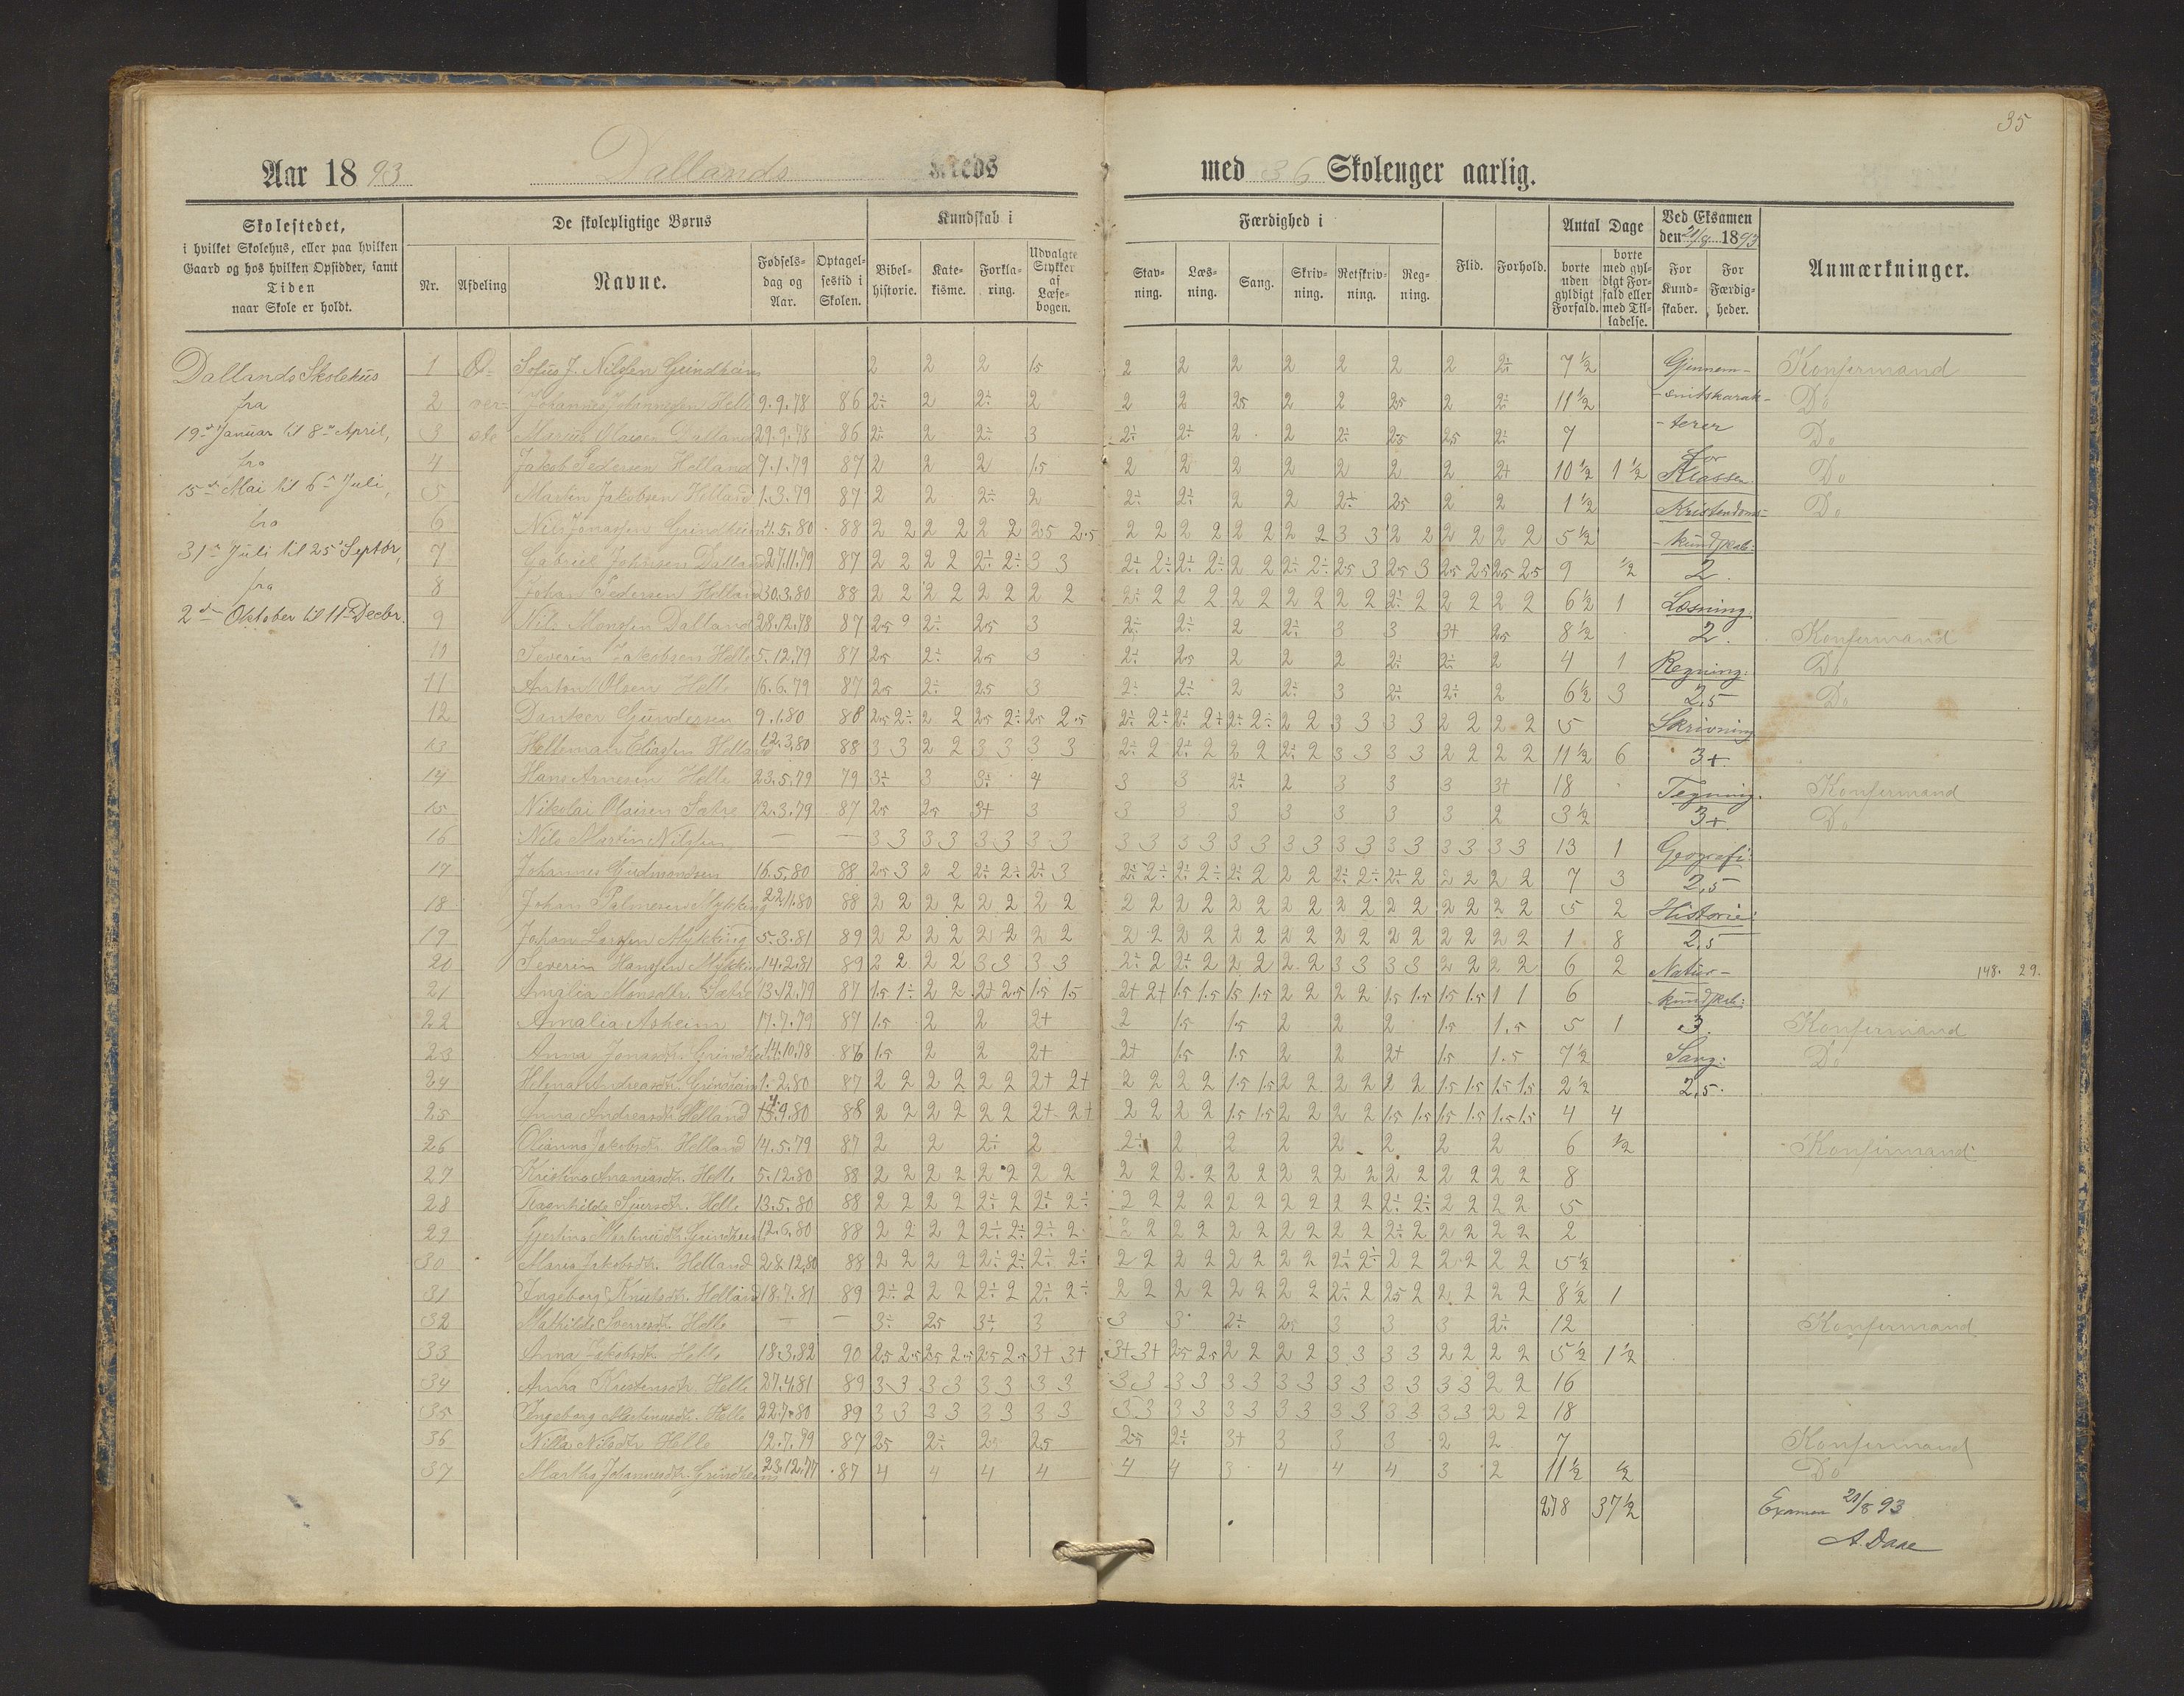 35
Aar 1893 Dallands Kreds med 36 Skolenger aarlig.
Skolestedet, i hvilket Skolehus, eller paa hvilken Gaard og hos hvilken Opsidder, samt Tiden naar Skole er holdt.
De skolepligtige Børns
Nr. Afdeling Navne. Fødsels-dag og Aar. Optagel-sestid i Skolen.
Kundskab i
Bibel-historie. Kate-kisme. Forkla-ring. Udvalgte Stykker af Læse-bogen.
Færdighed i
Stav-ning. Læs-ning. Sang. Skriv-ning. Retskriv-ning. Reg-ning. Flid. Forhold.
Antal Dage
borte uden gyldigt Forfald. borte med gyl-digt For-fald eller med Til-ladelse.
Ved Eksamen den 21/8 1893
For Kund-skaber. For Færdig-heder.
Anmærkninger.
Dallands Skolehus
fra
19de Januar til 8de April,
fra
15de Mai til 6te Juli,
fra
31te Juli til 25 Septbr,
fra
2den Oktober til 11te Decbr.
1 Ø- Sofus J. Nilssen Grindheim 2 2 2 1.5 2 2 2 2 2 2 2 2÷ 7½ Konfirmand
2 ver- Johannes Johannessen Helle 9.9.78 86 2÷ 2 2÷ 2 2 2 2.5 2 2 2.5 2 2÷ 11½ Do
3 ste Marius Olaisen Dalland 29.9.78 86 2÷ 2 2÷ 3 2÷ 2÷ 2 2 2÷ 2.5 2.5 2÷ 7 Do
4 Jakob Pedersen Helland 7.1.79 87 2 2 2 1.5 2 2 2 2 2 2 2 2+ 10½ 1½ Do
5 Martin Jakobsen Helland 1.3.79 87 2 2 2÷ 2 2÷ 2÷ 2 2 2÷ 2.5 2 2 1½ Do
6 Nils Jonassen Grindheim 4.5.80 88 2 2 2 2 2 2 2.5 2.5 2 2 2 2 2 2 2 2 3 3 2 2 2 2 2 2 5½
7 Gabriel Johnsen Dalland 27.11.79 87 2 2 2 2 2÷ 2÷ 3 3 2÷ 2÷ 2÷ 2÷ 2 2 2÷ 2÷ 2.5 3 2.5 3 2.5 2.5 2.5 2.5 9 ½
8 Johan Pedersen Helland 30.3.80 88 2 2 2 2 2 2 2 2 2÷ 2 2 2 2 2 2 2 2 2 2÷ 2 2 2 2 2 6½ 1
9 Nils Monssen Dalland 28.12.78 87 2.5 2÷ 2.5 3 2÷ 2÷ 2 2÷ 3 3 3+ 2.5 8½ Konfirmand
10 Severin Jakobsen Helle 5.12.79 87 2.5 2÷ 2.5 3 2÷ 2.5 2 2 2 2÷ 2÷ 2 4 1 Do
11 Anton Olsen Helle 16.6.79 87 2.5 2÷ 2.5 3 2÷ 2÷ 2 2÷ 3 2÷ 2÷ 2 6½ 3 Do
12 Danker Gundersen 9.1.80 88 2.5 2÷ 2 2 2.5 2÷ 2.5 2.5 2÷ 2÷ 2÷ 2÷ 2÷ 2÷ 2 2 3 3 3 3 2 2 2 2 5
13 Helleman Eliassen Helland 12.3.80 88 3 3 2 2 3 3 3 3 2÷ 2 2÷ 2 2 2 2÷ 2 3 3 3 3 2 2 2 2 11½ 6
14 Hans Arnesen Helle 23.5.79 79 3÷ 3 3÷ 4 3 3 2÷ 2 3 3 3 3+ 18 Konfirmand
15 Nikolai Olaisen Sætre 12.3.79 87 2.5 2.5 3+ 3 3 3 3 3 3 3 3 2 3½ Do
16 Nils Martin Nilssen — — 3 3 3 3 3 3 3 3 3 3 3 3 3 3 3 3 3 3 3 3 3 3 3 3 13 1
17 Johannes Gudmundsen 16.5.80 88 2.5 3 2 2 2÷ 2÷ 2÷ 3 2÷ 2÷ 2÷ 2÷ 2÷ 2 2 2 2÷ 2÷ 2÷ 2 2 2 2 2 7 3
18 Johan Palmesen Mykking 22.11.80 88 2 2 2 2 2 2 2 2 2 2 2 2 2 2 2 2 2 2 2 2 2 2 2 2 5 2
19 Johan Larssen Mykking 5.3.81 89 2 2 2 2 2 2 2 2 2 2 2 2 2 2 2 2 2 2 2 2 2 2 2 2 1 8
20 Severin Hanssen Mykking 14.2.81 89 2 2 2 2 3 3 3 3 2÷ 2 2÷ 2 2 2 2 2 3 3 3 3 2 2 2 2 6 2 148. 29.
21 Amalia Monsdtr. Sætre 13.12.79 87 1.5 1÷ 2 2 2+ 2.5 1.5 1.5 2+ 2+ 1.5 1.5 1.5 1.5 2 2 2 2 1.5 1.5 1.5 1.5 1 1 6
22 Amalia Asheim 17.7.79 87 1.5 2 2 2+ 2 1.5 1.5 2 2 2 1.5 1.5 5 1 Konfirmand
23 Anna Jonasdtr. Grindheim 14.10.78 86 1.5 2 2 2+ 2+ 1.5 1.5 2 2 2+ 1.5 1.5 7½ Do
24 Helena Andreasdtr. Grindheim 1.2.80 87 2 2 2 2 2 2 2+ 2+ 2 2 2 2 1.5 1.5 2 2 2 2 2 2 1.5 1.5 1.5 1.5 2½
25 Anna Andreasdtr. Helland 9.80 88 2 2 2 2 2 2 2+ 2+ 2 2 2 2 1.5 1.5 2 2 2 2 1.5 1.5 1.5 1.5 1.5 1.5 4 4
26 Olianna Jakobsdtr. Helland 14.5.79 87 2 2 2÷ 2 2÷ 2 2 2 2 2 2 2 6 ½ Konfirmand
27 Kristina Ananiasdtr. Helle 5.12.80 88 2 2 2 2 2 2 2 2 2 2 2 2 2 2 2 2 2 2 2 2 2 2 2 2 8
28 Ragnhilda Sjursdtr. Helle 13.5.80 88 2 2 2 2 2÷ 2 2÷ 2÷ 2 2 2 2 2 2 2 2 2 2 2÷ 2÷ 2 2 2 2 5
29 Gjertina Martinusdtr. Grindheim 12.6.80 88 2 2 2 2 2÷ 2÷ 2÷ 2 2 2 2 2 2 2 2 2 2 2 2÷ 2 2 2 2 2 2
30 Maria Jakobsdtr. Helland 28.12.80 88 2 2 2 2 2÷ 2÷ 2÷ 2÷ 2 2 2 2 2 2 2 2 2÷ 2÷ 2 2 2 2 2 2 5½
31 Ingeborg Knutsdtr. Helland 18.7.81 89 2÷ 2 2 2 2÷ 2 2÷ 2÷ 2 2 2 2 2 2 2 2 2÷ 2 2.5 2 2 2 2 2 8½ 1
32 Mathilde Sverresdtr. Helle — — 3÷ 2.5 3÷ 3 3 3 2÷ 2.5 3 3 3 2÷ 12 Konfirmand
33 Anna Jakobsdtr. Helle 18.3.82 90 2.5 2.5 2.5 2.5 2.5 2.5 3+ 3+ 3+ 3+ 2.5 2.5 2 2 2 2 3 3 3 3 2 2 2 2 5½ 1½
34 Anna Kristensdtr. Helle 27.4.81 89 3 3 3 3 3 3 3 3 3 3 3 3 3 3 3 3 3 3 3 3 3 3 2 2 16
35 Ingeborg Martinusdtr. Helle 22.7.80 89 3 3 3 3 3 3 3 3 3 3 3 3 3 3 3 3 3 3 3 3 3 3 2 2 18
36 Nilla Nilsdtr. Helle 12.7.79 87 2.5 2÷ 2.5 2.5 2.5 2÷ 3+ 3 3 3 2 2 7 Konfirmand
37 Martha Johannesdtr. Grindheim 23.12.77 87 4 4 4 4 4 4 3 4 4 4 3 2 11½ ½ Do
278 37½
Gjennem-
-snitskarak-
-terer
for
Klassen.
Kristendoms-
-kundskab:
2.
Læsning.
2.
Regning:
2,5
Skrivning
3+
Tegning.
3+
Geografi:
2,5
Historie:
2,5
Natur-
kundskab:
3.
Sang:
2,5.
Examen 21/8 93
A. Daae